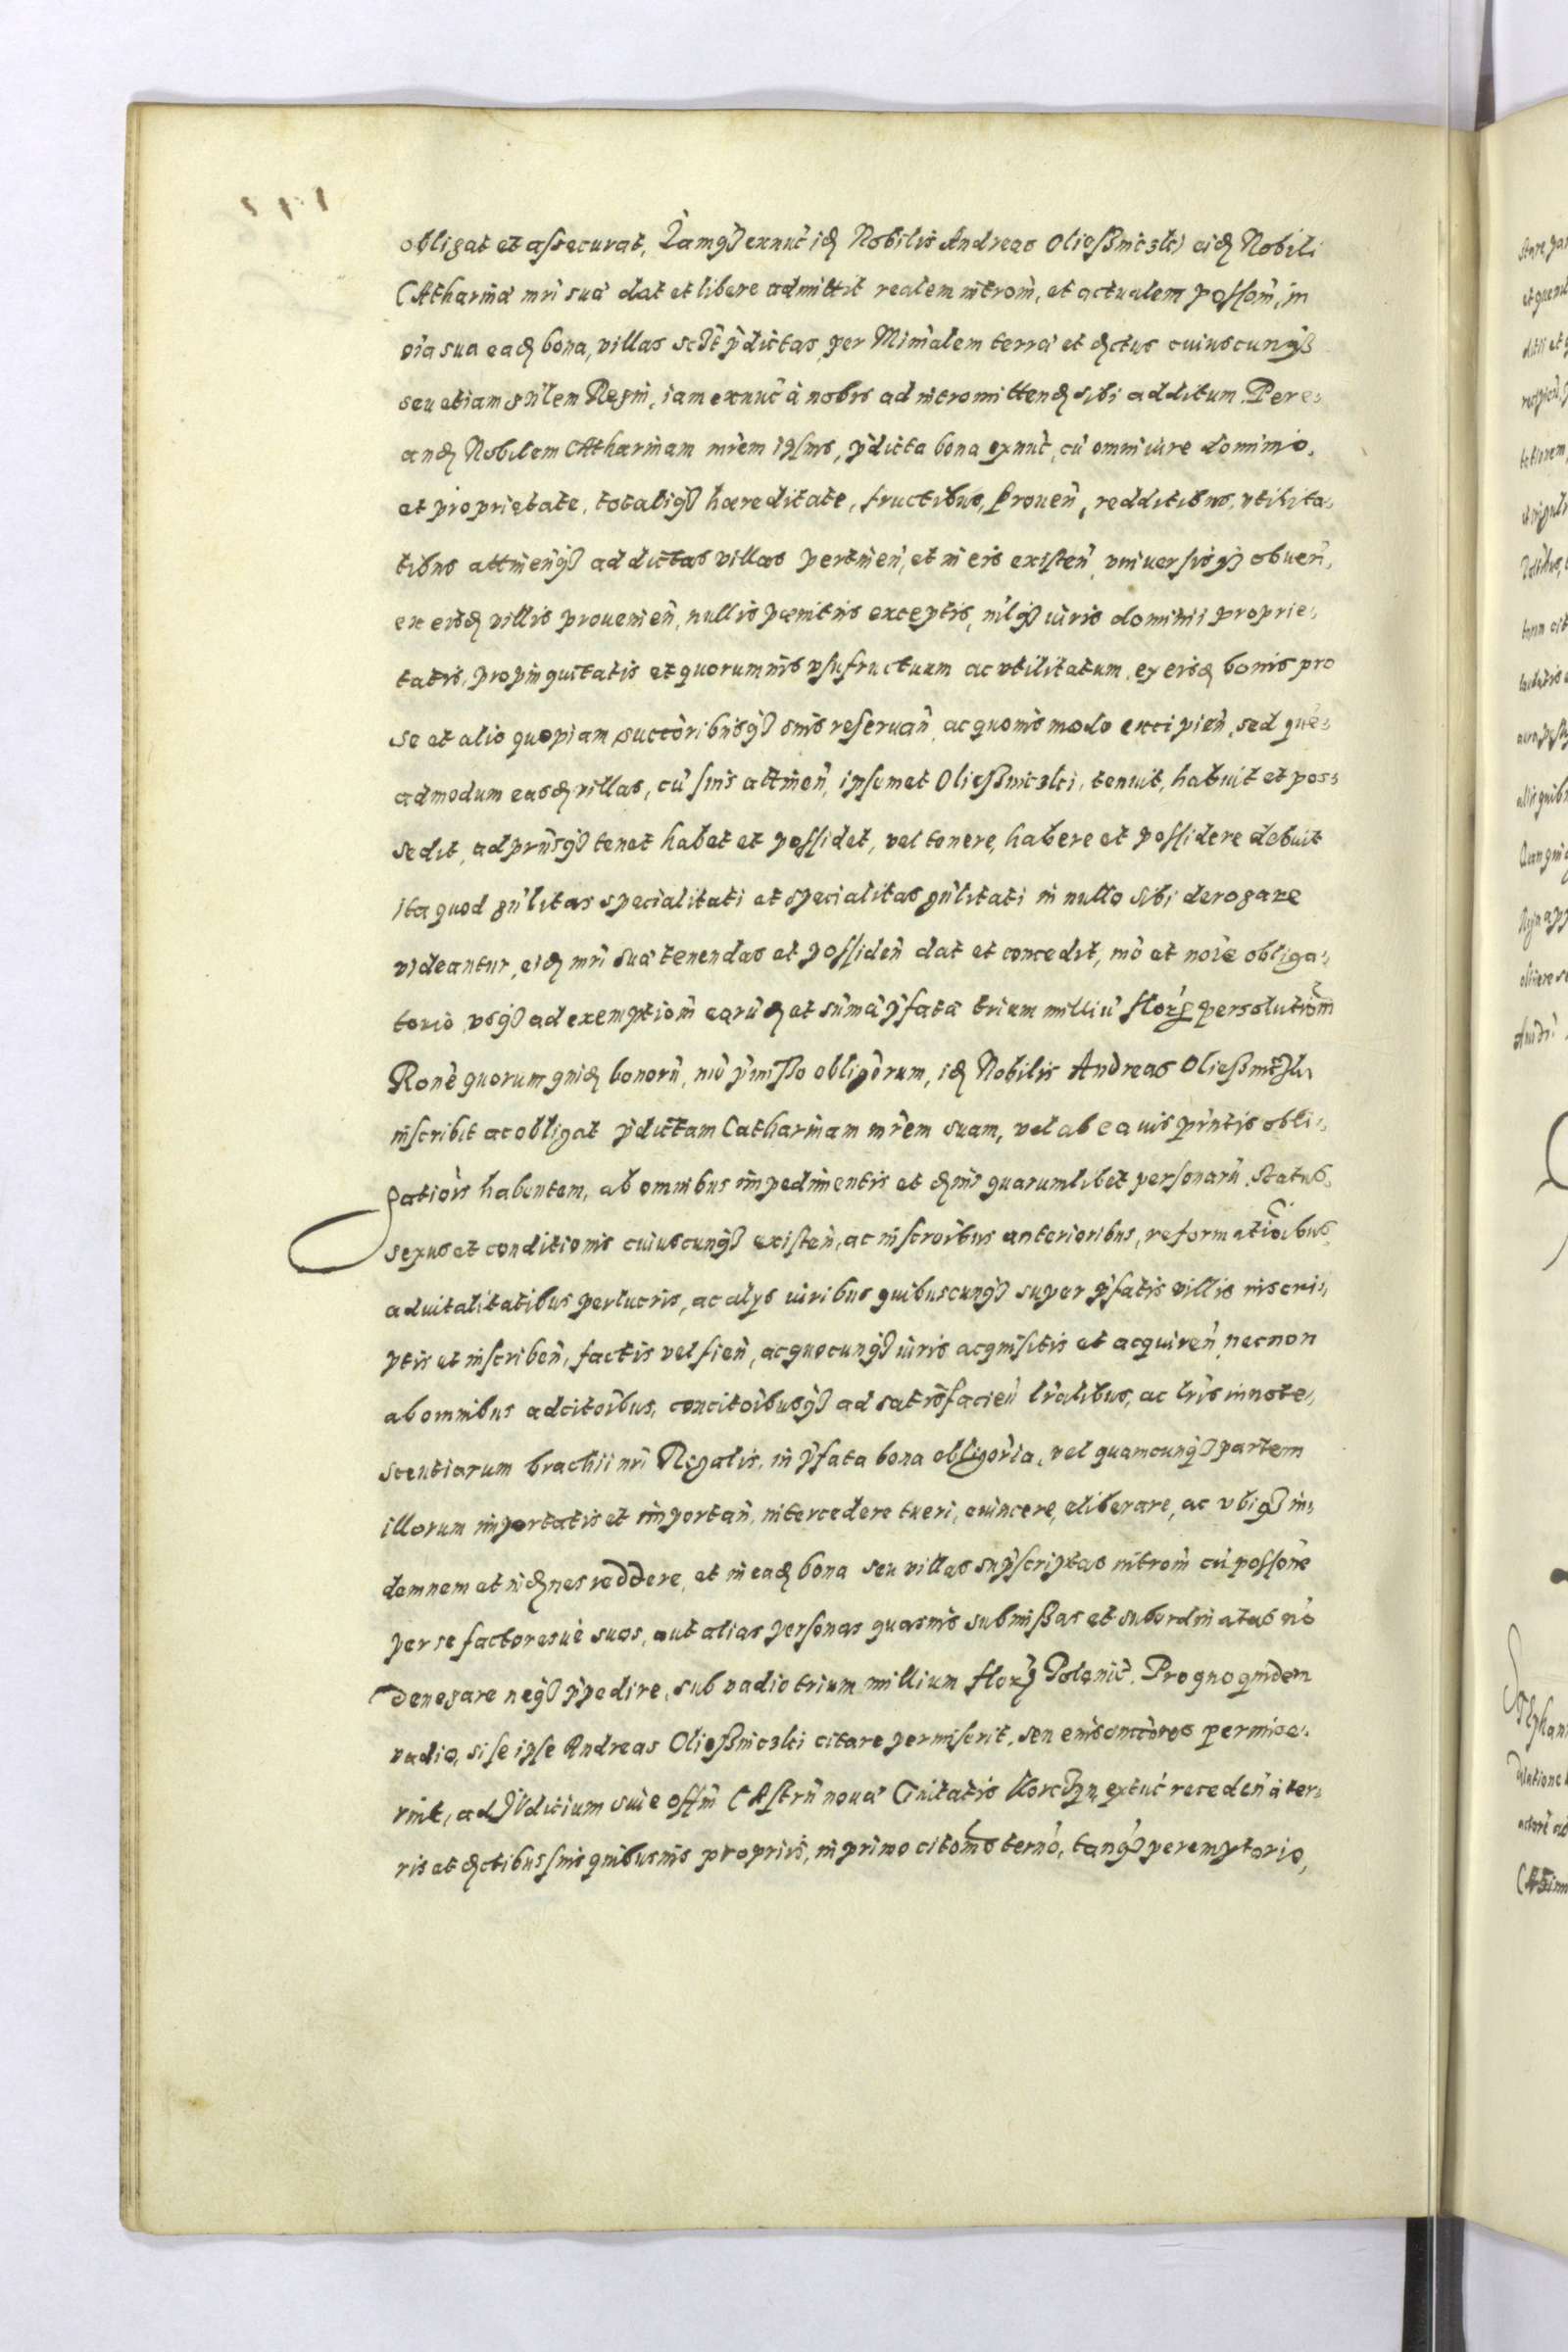 obligat et assecurat, Iamq3 exnuc idē Nobilis Andreas Olieszniczki eidē Nobili
CAtharinæ mri suæ dat et libere admittit realem introm̄, et actualem possom̄, in
oīa sua eadē bona, villas sclt p̄dictas per Minīalem terræ et dctus cuiuscunq3
seu etiam gn̄lem Regni, iam exnuc à nobis ad intromittendē sibi additum. Per e,,
andē Nobilem CAtharinam mrēm ipsius, p̄dicta bona exnuc, cū omni iure dominio,
et proprietate, totaliq3 hæreditate, fructibus, prouen̄, redditibus, vtilita,,
tibus attinen̄q3 ad dictas villas pertinen̄, et in eis existen̄, vniuersisq3 obuen̄,
ex eisdē villis prouenien̄, nullis pænitus exceptis, nilq3 iuris dominii proprie,,
tatis, propinquitatis et quorumuis vsufructuum ac vtilitatum, ex eisdē bonis pro
se et alio quopiam succōribusq3 suis reseruan̄, ac quouismodo excipien̄, sed quē,,
admodum easdē villas, cū suis attinen̄, ipsemet Olieszniczki, tenuit, habuit et pos,,
sedit, ad prn̄sq3 tenet habet et possidet, vel tenere, habere et possidere debuit
Ita quod gn̄litas specialitati et specialitas gn̄litati in nullo sibi derogare
videantur, eidē mri suæ tenendas et possiden̄ dat et concedit, mō et noīe obliga,,
torio vsq3 ad exemptiom̄ earūdē et sum̄æ p̄fatæ trium milliū flor persolutiom̄
Ronè quorum quidē bonorū, mō p̄misso obligōrum, idē Nobilis Andreas Olieszniczki
inscribit ac obligat p̄dictam Catharinam mrēm suam, vel ab ea ius prn̄tis obli,,
gatiōis habentem, ab omnibus impedimentis et dnis quarumlibet personarū, status,
sexus et conditionis cuiuscunq3 existen̄, ac inscroībus anterioribus, reformatiōibus,
aduitalitatibus perlucris, ac alijs iuribus quibuscunq3 super p̄fatis villis inscri,,
ptis et inscriben̄, factis vel fien̄, ac quocunq3 iuris acquisitis et acquiren̄ necnon
ab omnibus adcitoībus, concitoībusq3 ad satisfacien̄ lralibus, ac lris innote,,
scentiarum brachii nri Regalis, in p̄fata bona obligōria, vel quamcunq3 partem
illorum importatis et importan̄, intercedere tueri, euincere, eliberare, ac vbiq3 in,,
demnem et indēnes reddere, et in eadē bona seu villas sup̄scriptas introm̄ cū possone
per se factoresuè suos, aut alias personas quasuis submissas et subordinatas nō
denegare neq3 p̄pedire, sub vadio trium millium flor Polonic. Pro quo quidem
vadio, si se ipse Andreas Olieszniczki citare permiserit, seu eius succōres permise,,
rint, ad Iudicium siue offm̄ CAstrn̄ nouæ Ciuitatis Korczyn, extuc receden̄ à ter,,
ris et dctibus suis quibusuis propriis, in primo citom̄s termō, tanq3 peremptorio,